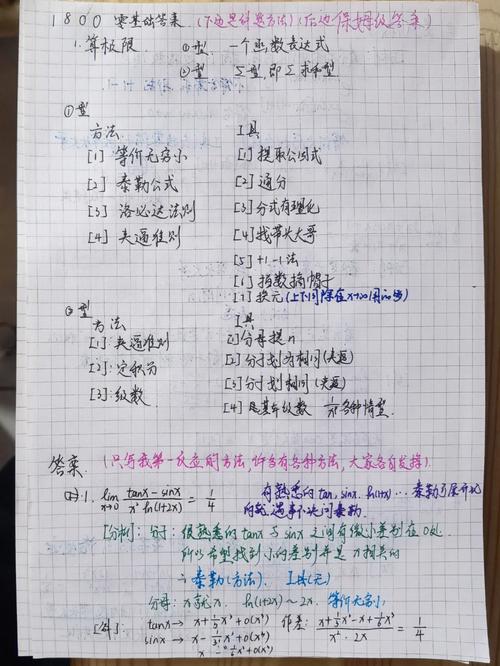 1800 零基础答案 (下边是计算方法)(后边保姆级答案)
1. 算极限 ①型 一个函数表达式
②型 Σ型, 即Σ求和型
①型
方法 工具
[1] 等价无穷小 [1] 提取公因式
[2] 泰勒公式 [2] 通分
[3] 洛必达法则 [3] 分式有理化
[4] 夹逼准则 [4] 找带头大哥
[5] +1-1法
[6] 指数摘帽子
[7] 换元 (上下同除在x→∞用的多)
②型
方法 工具
[1] 夹逼准则 [1] 分母提n
[2] 定积分 [2] 分子划为相同 (夹逼)
[3] 级数 [3] 分子划相同 (夹逼)
[4] 是某年级数 各种情型.
答案 (只写我第一反应的方法, 许多有各种方法, 大家各自发挥)
1. lim x→0 (tanx - sinx)/(x² ln(1+2x)) = 1/4 有熟悉的 tan, sinx. ln(1+x) ... 泰勒可展开化
的就, 遇事不决问泰勒.
[分析]: 分子: 很熟悉的 tanx 与 sinx 之间有微小差别在0处
所以希望找到小的差别并是x相关的
∴ 泰勒(方法). 工具(无)
分母: x就x. ln(1+2x) ~ 2x. 等价无穷小
[解] tanx → x + 1/3 x³ + o(x³) 作差: (x + 1/3 x³ - x + 1/6 x³)/(x² · 2x) = 1/4
sinx → x - 1/3! x³ + o(x³)
x - 1/6 x³ + o(x³)